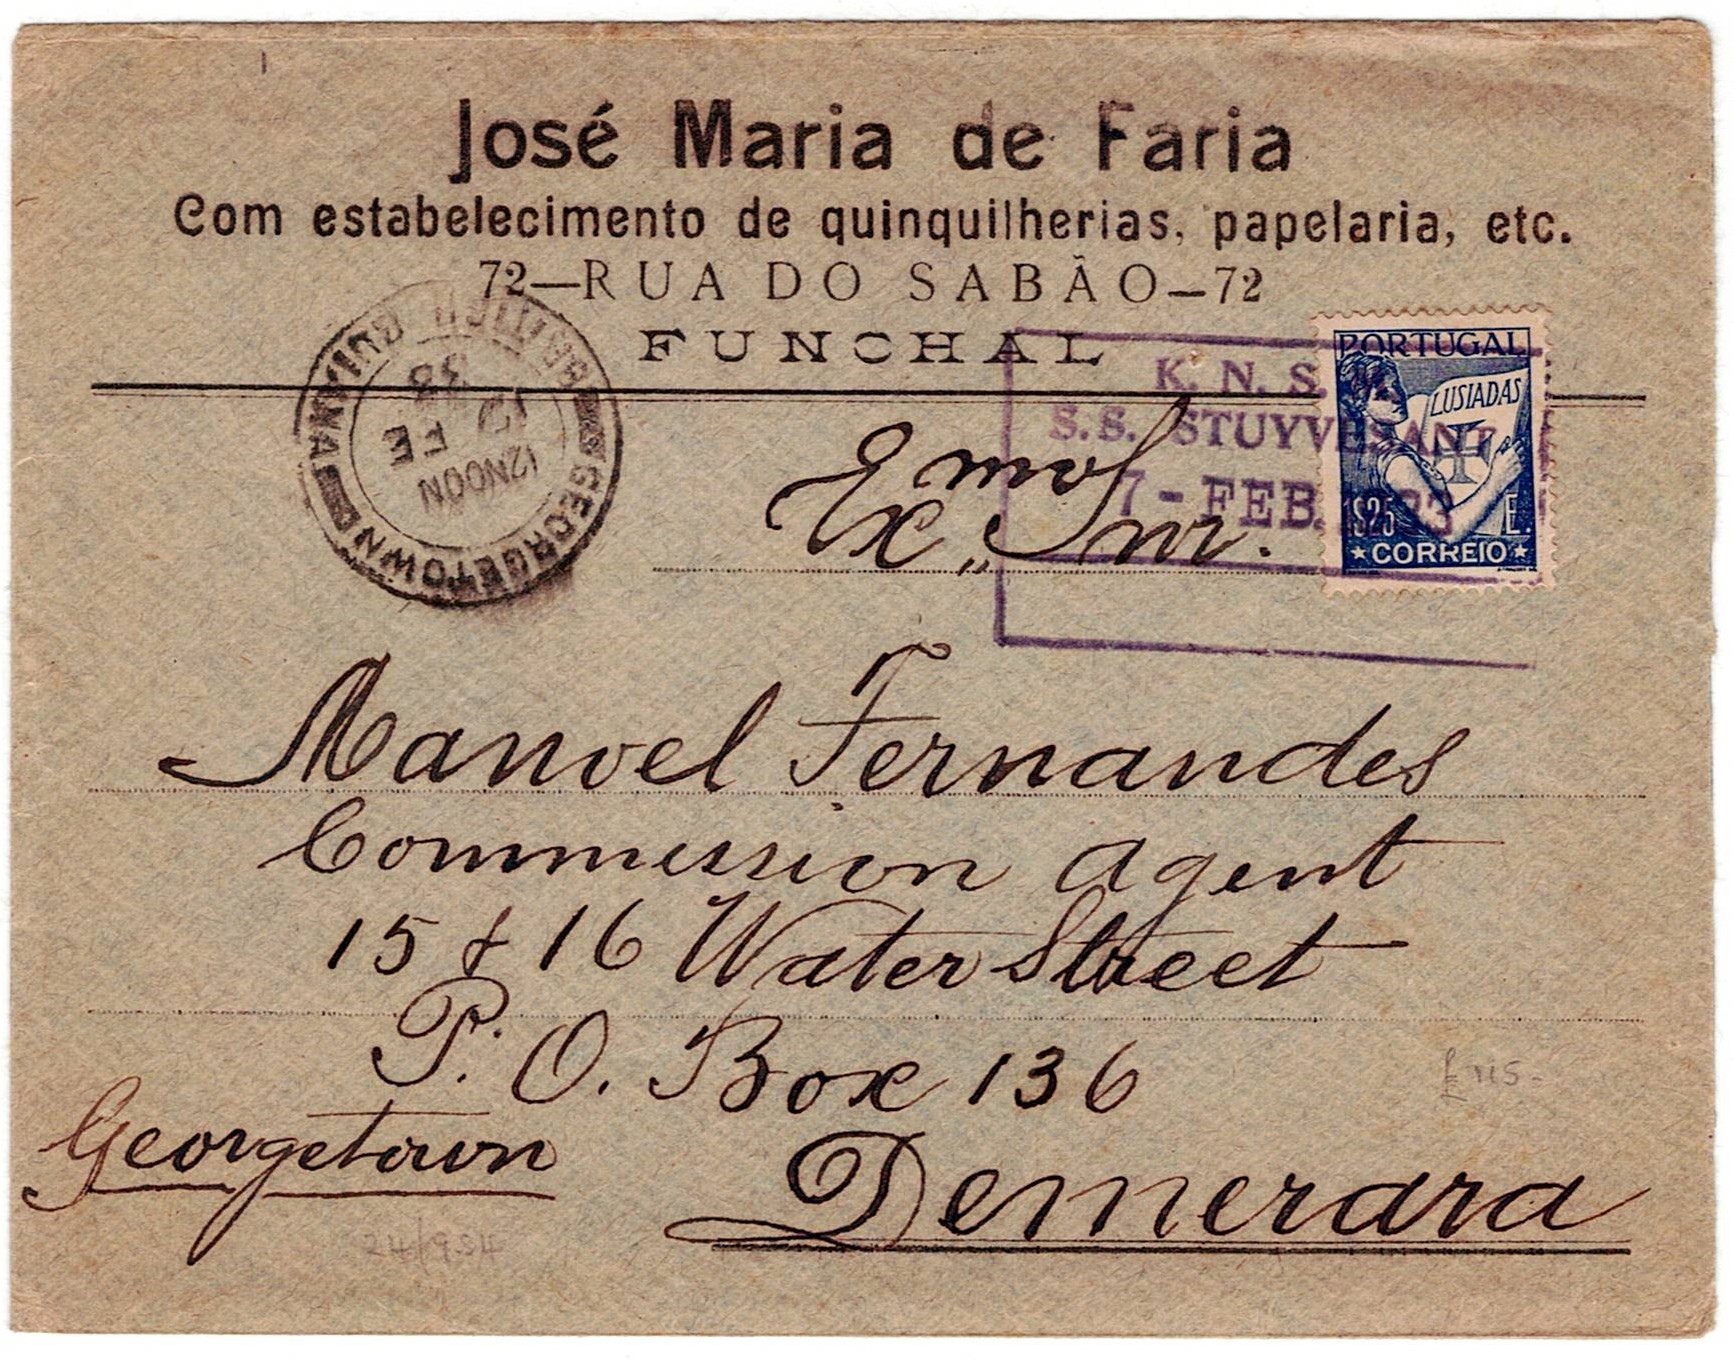 José Maria de Faria
Com estabelecimento de quinquilherias, papelaria, etc.
72—RUA DO SABÃO—72
FUNCHAL
GEORGETOWN
BRITISH GUIANA
12NOON
FE
38
K. N. S.
S.S. STUYVESANT
7-FEB.
PORTUGAL
LUSIADAS
1$25 E.
CORREIO
Exmo Snr.
Manoel Fernandes
Commission agent
15 & 16 Water Street
P. O. Box 136
Georgetown
Demerara
£ 115-